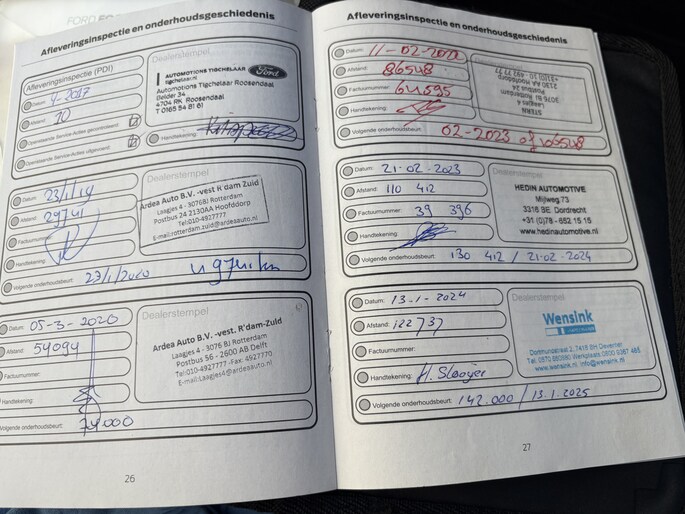 FORD
Afleveringsinspectie en onderhoudsgeschiedenis
Afleveringsinspectie (PDI)
Datum: 4-2017
Afstand: 10
Openstaande Service-Acties gecontroleerd:
Openstaande Service-Acties uitgevoerd:
Dealerstempel
AUTOMOTIONS TIGCHELAAR
tigchelaar.nl
Ford
Automotions Tigchelaar Roosendaal
Gelder 34
4704 RK Roosendaal
T 0165 54 81 81
Handtekening:
Datum: 23/1/19
Afstand: 29741
Factuurnummer:
Handtekening:
Volgende onderhoudsbeurt: 23/1/2020
Dealerstempel
Ardea Auto B.V. -vest R'dam Zuid
Laagjes 4 - 3076BJ Rotterdam
Postbus 24 2130AA Hoofddorp
Tel:010-4927777
E-mail:rotterdam.zuid@ardeaauto.nl
Datum: 05-3-2020
Afstand: 54094
Factuurnummer:
Handtekening:
Volgende onderhoudsbeurt: 74.000
Dealerstempel
Ardea Auto B.V. -vest. R'dam-Zuid
Laagjes 4 - 3076 BJ Rotterdam
Postbus 56 - 2600 AB Delft
Tel:010-4927777 -Fax: 4927770
E-mail:Laagjes4@ardeaauto.nl
26
Afleveringsinspectie en onderhoudsgeschiedenis
Datum: 11-02-2022
Afstand: 86548
Factuurnummer: 64595
Handtekening:
Volgende onderhoudsbeurt: 02-2023 of 106548
Dealerstempel
STERN
Laagjes 4
3076 BJ Rotterdam
Postbus 24
2130 AA Hoofddorp
Datum: 21-02-2023
Afstand: 110 412
Factuurnummer: 39 396
Handtekening:
Volgende onderhoudsbeurt: 130 412 / 21-02-2024
Dealerstempel
HEDIN AUTOMOTIVE
Mijlweg 73
3316 BE Dordrecht
+31 (0)78 - 652 15 15
www.hedinautomotive.nl
Datum: 13-1-2024
Afstand: 122737
Factuurnummer:
Handtekening: H. Slooyer
Volgende onderhoudsbeurt: 142.000 / 13.1.2025
Dealerstempel
Wensink
Dortmundstraat 2, 7418 BH Deventer
www.wensink.nl info@wensink.nl
27